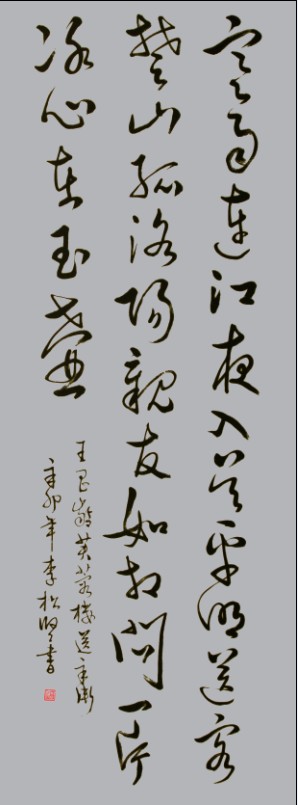 寒雨連江夜入吳平明送客
楚山孤洛陽親友如相問一片
冰心在玉壺
王昌齡芙蓉樓送辛漸
辛卯年李松書